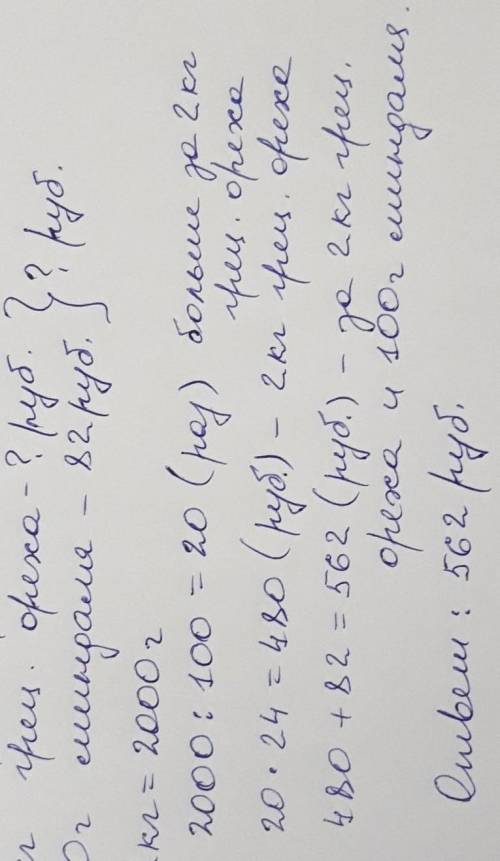 грец. ореха - ? руб. } ? руб.
0г миндаля - 82 руб.
кг = 2000г
2000 : 100 = 20 (раз) больше за 2 кг
грец. ореха
20 · 24 = 480 (руб.) - 2 кг грец. ореха
480 + 82 = 562 (руб.) - за 2 кг грец.
ореха и 100г миндаля.
Ответ : 562 руб.